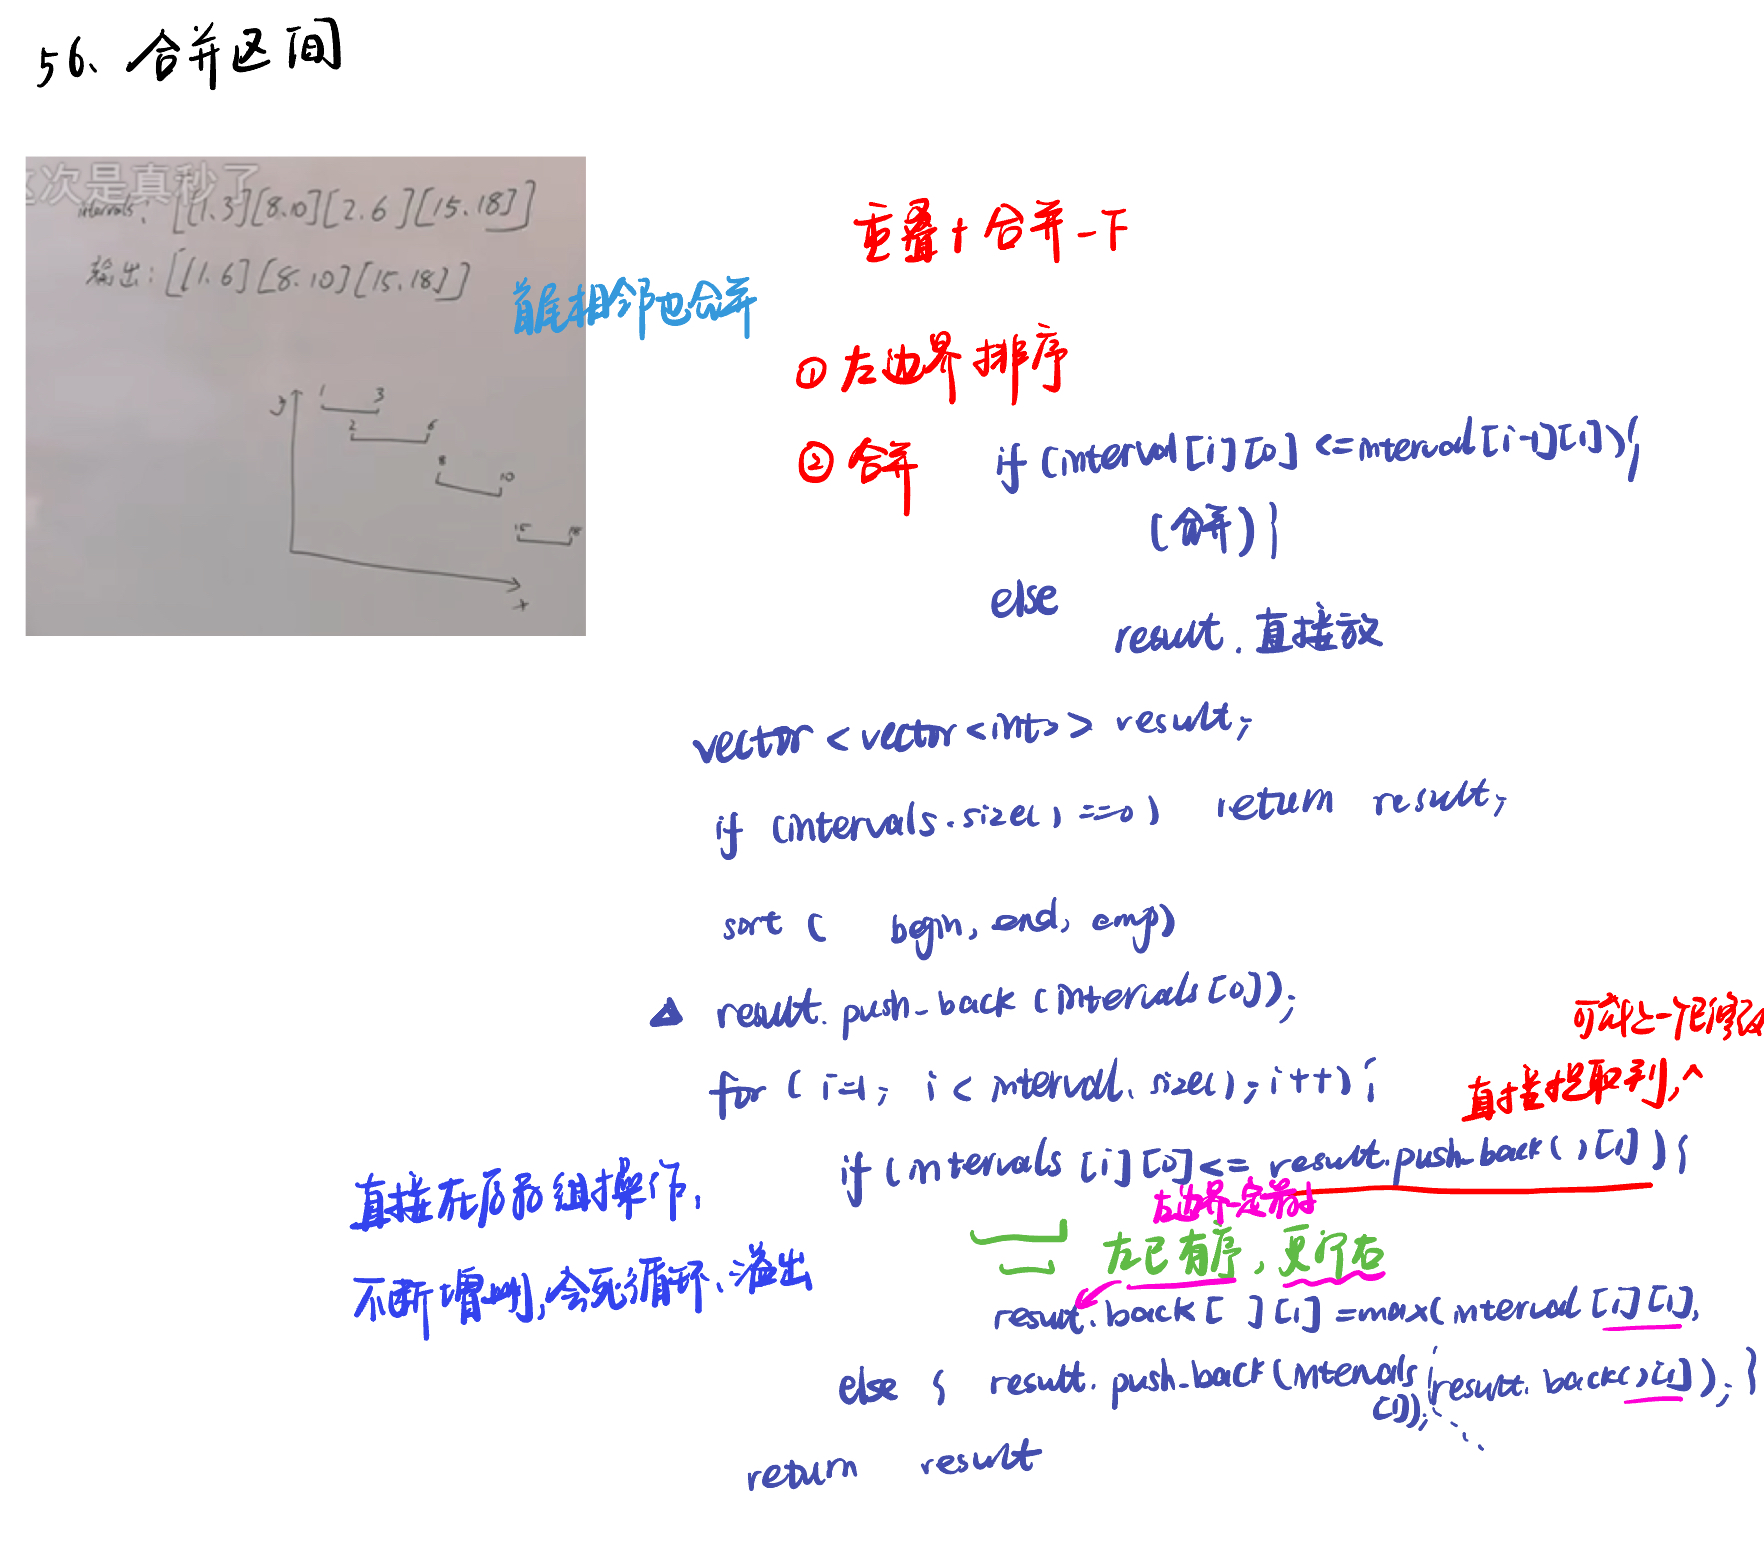 56、合并区间
这次是真秒了
intervals: [[1.3][8.10][2.6][15.18]]
输出: [[1.6][8.10][15.18]]
首尾相邻也合并
y
1 3
2 6
8 10
15 18
x
重叠+合并一下
① 左边界排序
② 合并 if (interval[i][0] <= interval[i-1][1]){
(合并)}
else
result.直接放
vector<vector<int>> result;
if (intervals.size()==0) return result;
sort ( begin, end, cmp)
△ result.push-back (intervals[0]);
for ( i=1; i < interval.size(); i++){
可能上一个已修改
直接提取到,^
if (intervals [i][0] <= result.push-back()[1]){
左边界一定最小
左已有序,更新右
result.back[ ][1] =max(interval [i][1],
result.back()[1]);}
else { result.push-back(intervals
[i]);
return result
直接在后数组操作,
不断增删,会死循环、溢出